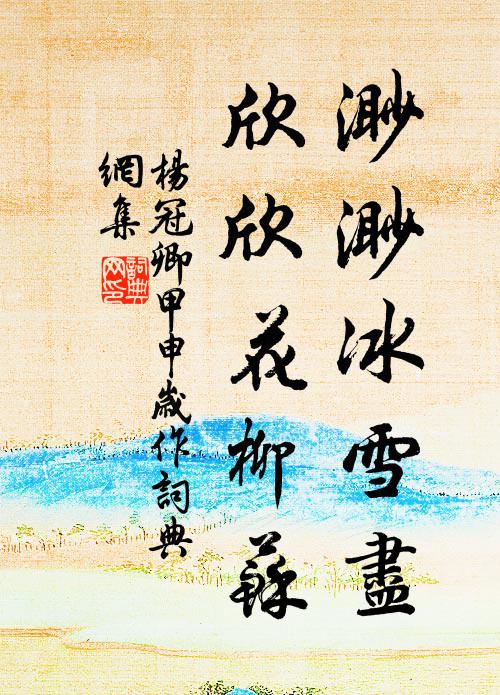 渺渺冰雪盡
欣欣花柳蘇
楊冠卿甲申歲作詞典
網集
詞典網印